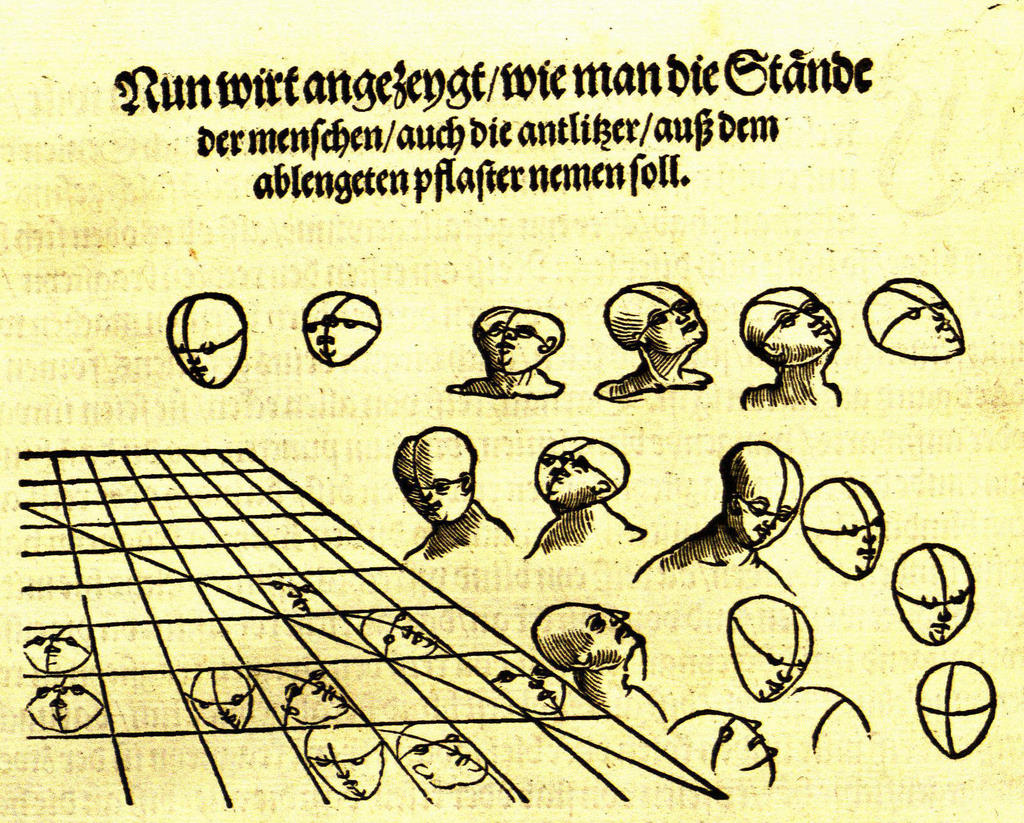 Nun wirt angezeygt/wie man die Stände
der menschen/auch die antlitzer/auß dem
ablengeten pflaster nemen soll.